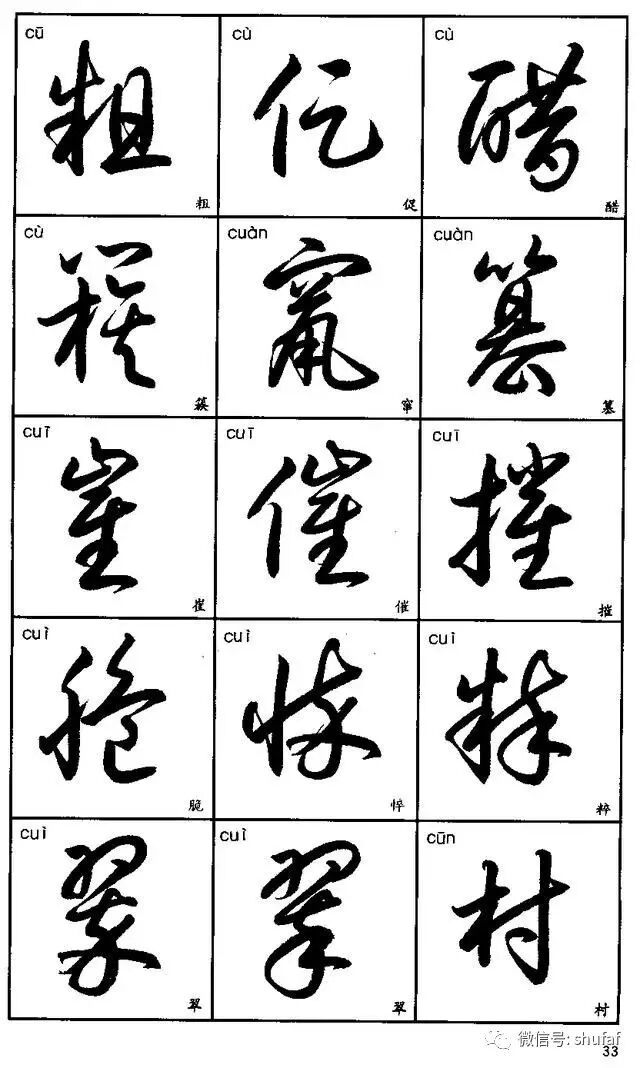 cū cù cù
粗 促 醋
粗 促 醋
cù cuàn cuàn
簇 窜 篡
簇 窜 篡
cuī cuī cuī
崔 催 摧
崔 催 摧
cuì cuì cuì
脆 悴 粹
脆 悴 粹
cuì cuì cūn
翠 翠 村
翠 翠 村
微信号: shufaf
33